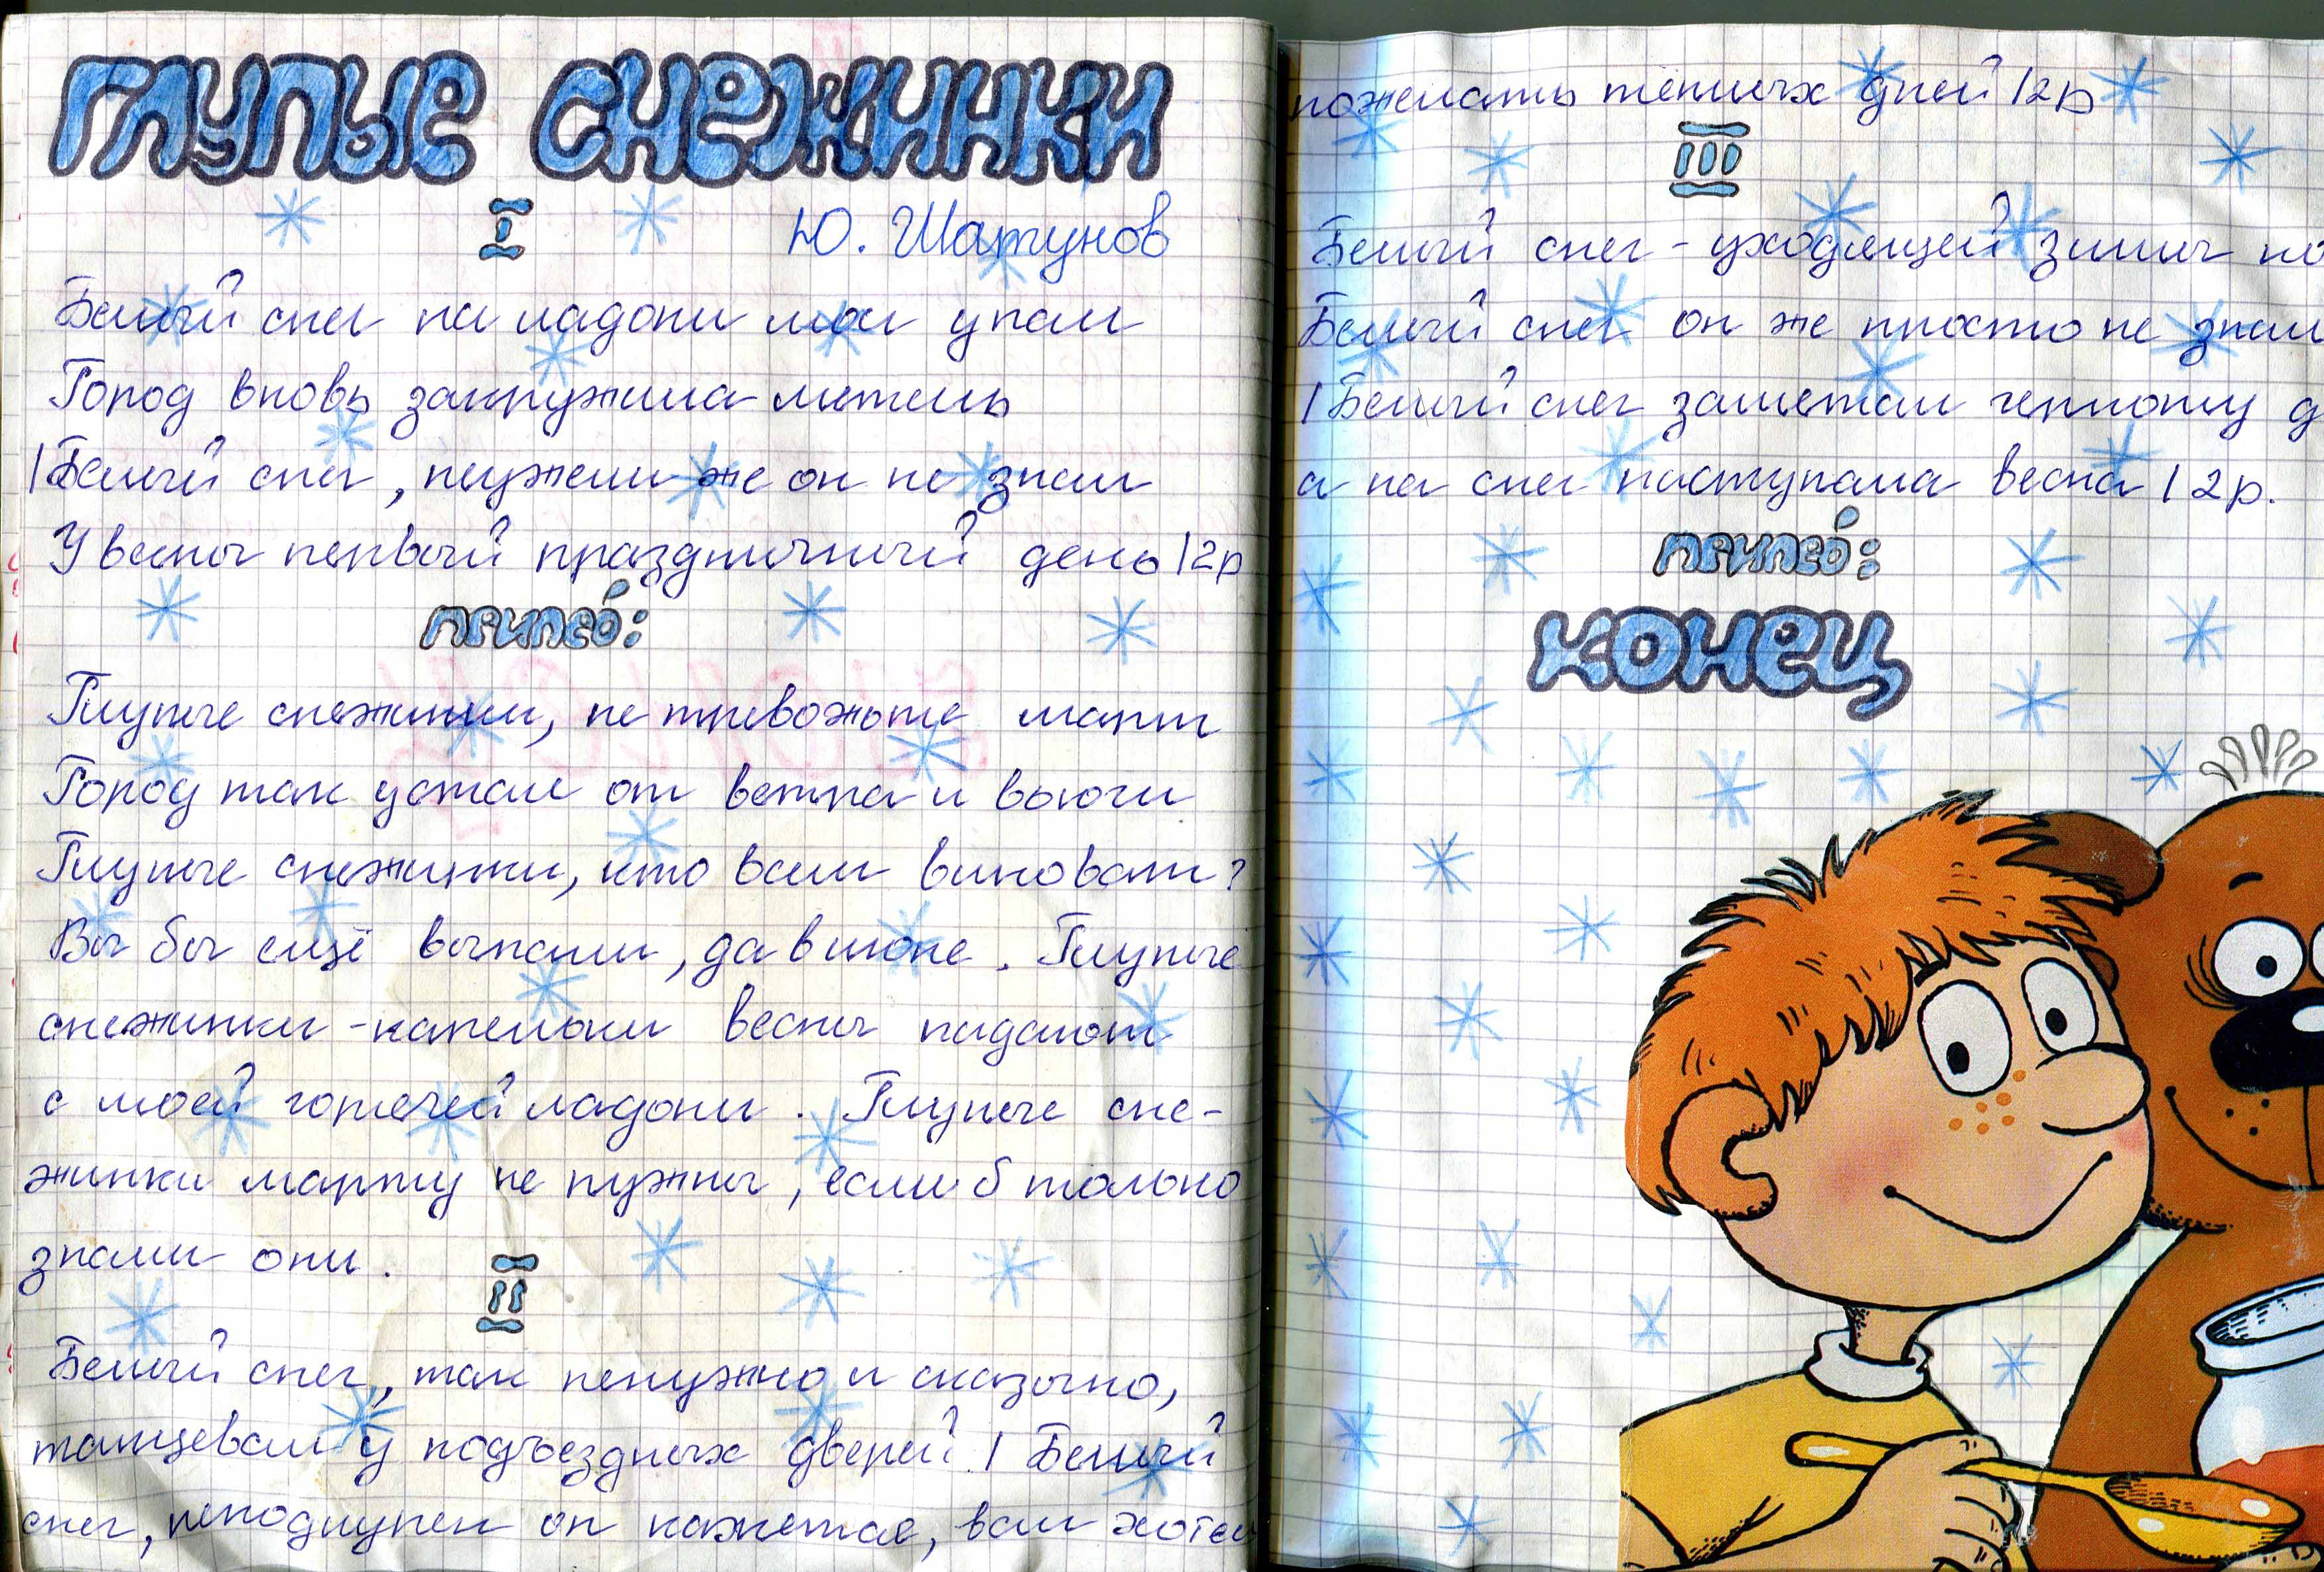 ГЛУПЫЕ СНЕЖИНКИ
I Ю. Шатунов
Белый снег на ладони мои упал
Город вновь закружила метель
|Белый снег, неужели же он не знал
У весны первый праздничный день |2р
ПРИПЕВ:
Глупые снежинки, не тревожьте март
Город так устал от ветра и вьюги
Глупые снежинки, кто вам виноват?
Вы бы ещё выпали, да в июне. Глупые
снежинки - капельки весны падают
с моей горячей ладони. Глупые сне-
жинки марту не нужны, если б только
знали они.
II
Белый снег, так ненужно и сказочно,
танцевал у подъездных дверей. | Белый
снег, неподкупен он кажется, вам хотел
пожелать тёплых дней |2р
III
Белый снег - уходящей зимы
Белый снег он же просто не знал
|Белый снег заметал черноту
а на снег наступала весна | 2р.
ПРИПЕВ:
КОНЕЦ